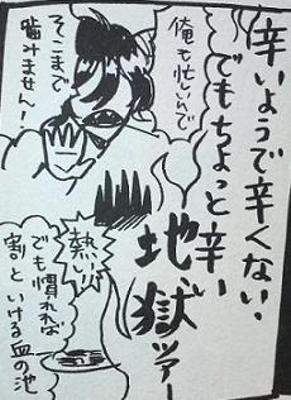 辛いようで辛くない、
でもちょっと辛い
地獄ツアー
俺も忙しいんで
そこまで
噛みません!
熱い
でも慣れれば
割といける血の池